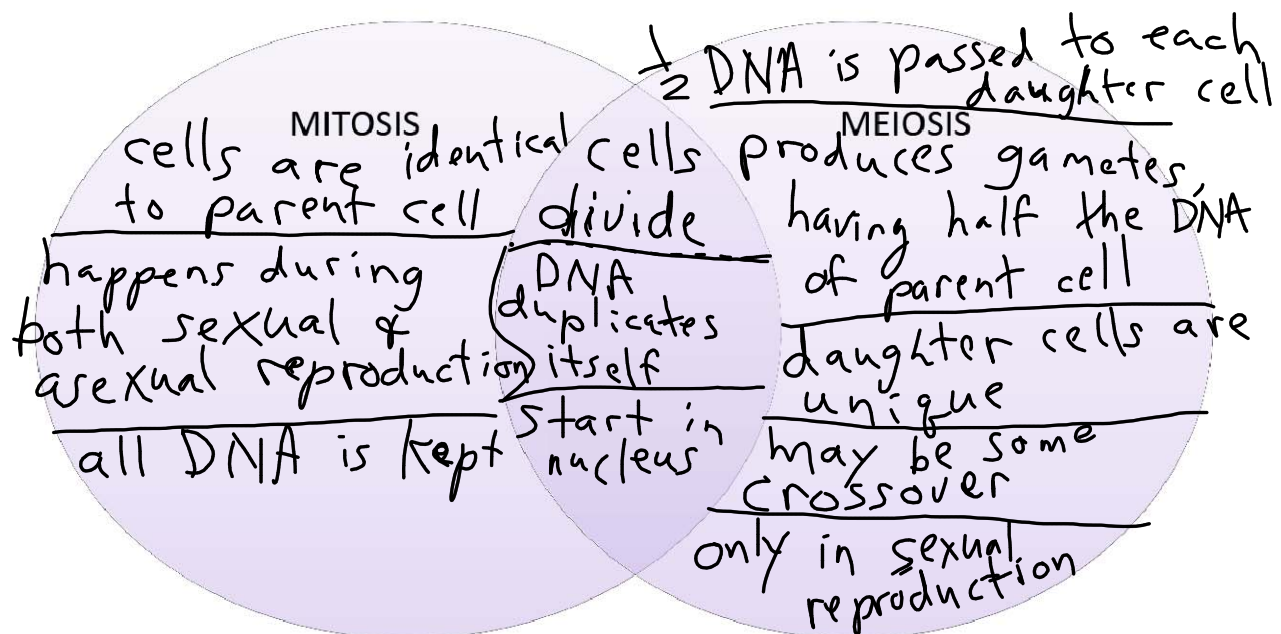 MITOSIS
cells are identical
to parent cell
happens during
both sexual &
asexual reproduction
all DNA is kept
cells
divide
DNA
duplicates
itself
start in
nucleus
1/2 DNA is passed to each
daughter cell
MEIOSIS
produces gametes,
having half the DNA
of parent cell
daughter cells are
unique
may be some
crossover
only in sexual
reproduction